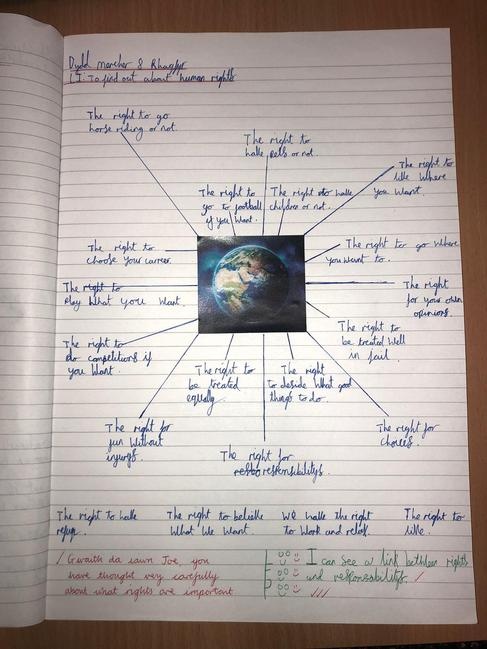 Dydd mercher 8 Rhagfyr
LI: To find out about human rights
The right to go
horse riding or not.
The right to
hake pets or not.
The right to
like Where
you Want.
The right to
go to football
if you Want.
The right to hake
children or not.
The right to
choose your career.
The right to go Where
you want to.
The right to
Play What you Want.
The right
for your own
opinions.
The right to
do competitions if
you Want.
The right to
be treated Well
in jail.
The right to
be treated
equally.
The right
to deside What good
things to do.
The right for
fun Without
injurys.
The right for
responsibilitys.
The right for
choices.
The right to hake
The right to belike
What We Want.
We hake the right
to Work and relax.
The right to
like.
Gwaith da iawn Joe, you
have thought very carefully
about what rights are important
I can see a link between rights
and responsibilitys.